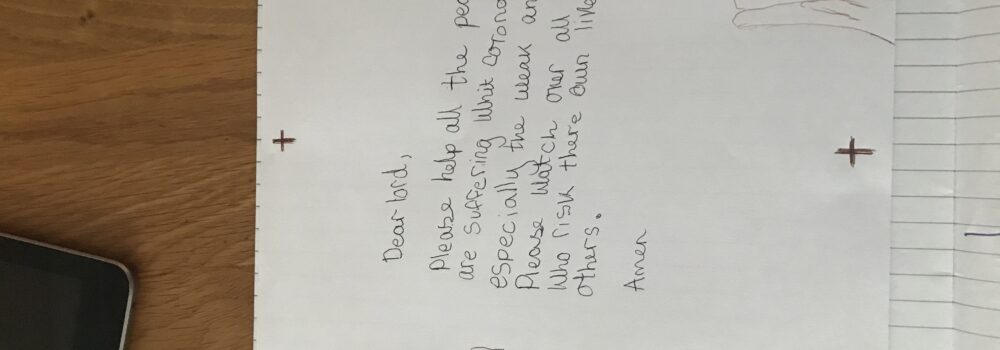 Dear lord,
Please help all the
are suffering Whit
especially the weak
Please Watch over all
Who risk there own
others.
Amen